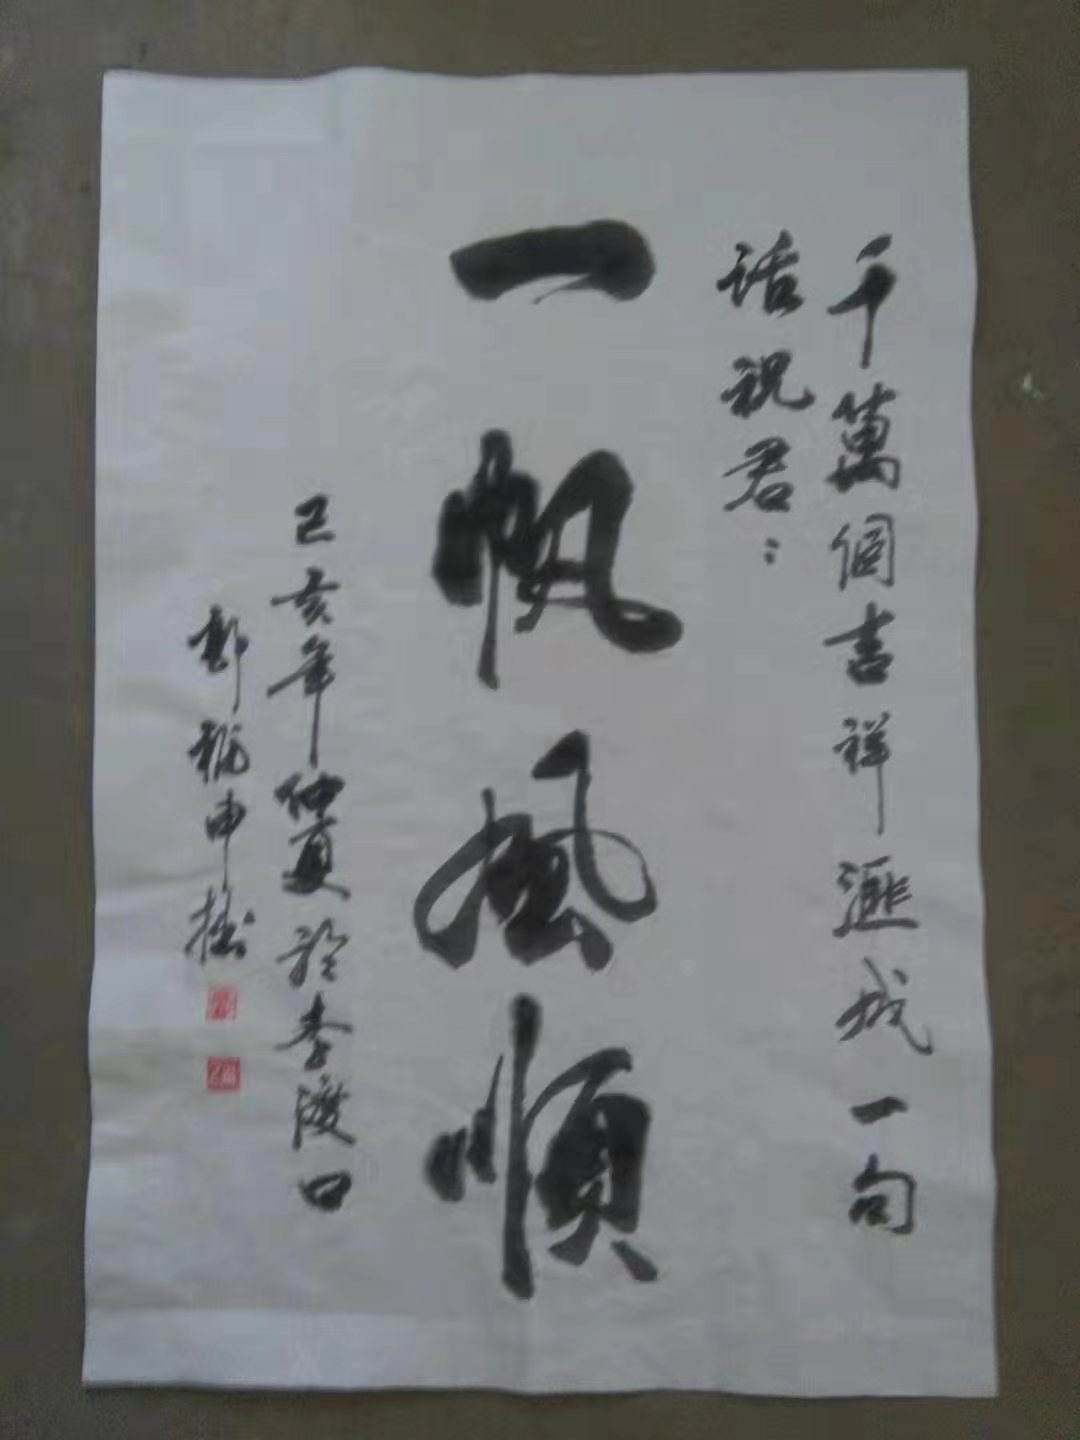 千萬個吉祥滙成一句
話祝君：
一帆風順
己亥年仲夏於李渡口
申